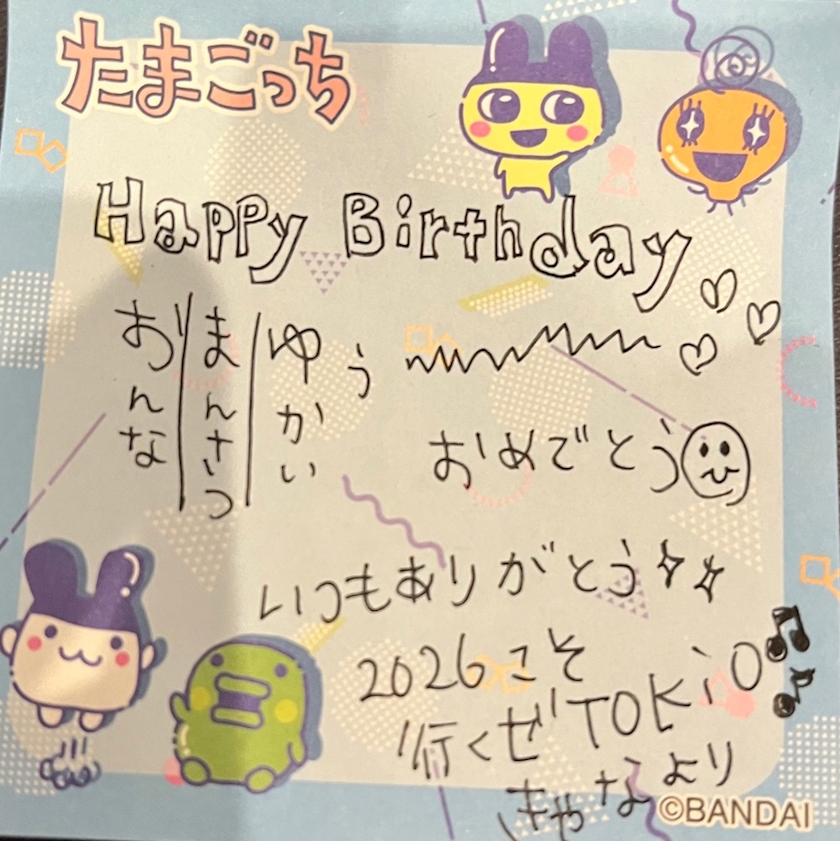 たまごっち
Happy Birthday
ゆかい
まんさつ
おんな
う
おめでとう
いつもありがとう
2026こそ
行くぜTOKiO
きゃなより
©BANDAI